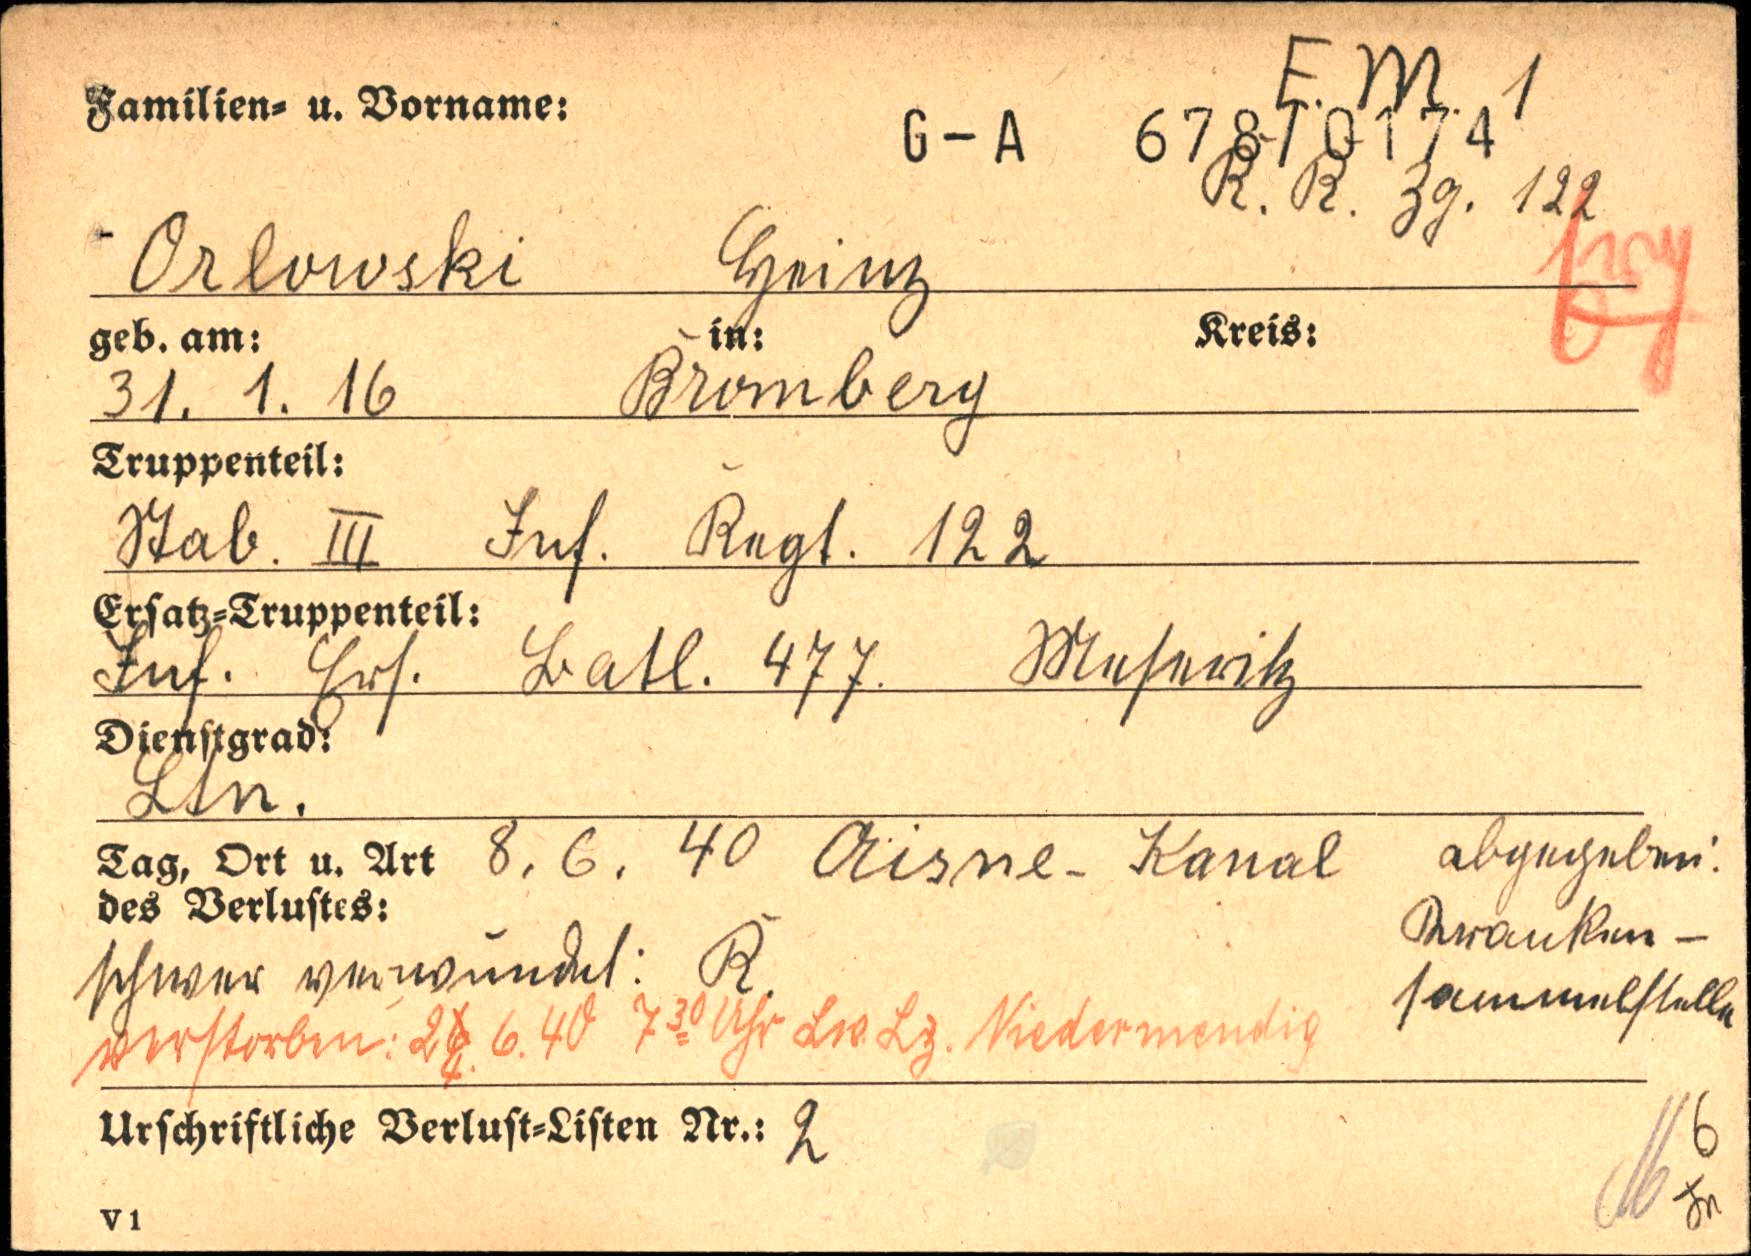 E. M. 1
Familien- u. Vorname:
G-A 678/0174
K. R. Zg. 122
Orlowski Heinz
geb. am: in: Kreis:
31. 1. 16 Bromberg
Truppenteil:
Stab. III Inf. Regt. 122
Ersatz-Truppenteil:
Inf. Ers. Batl. 477. Meseritz
Dienstgrad:
Ltn.
Tag, Ort u. Art 8. 6. 40 Aisne-Kanal abgegeben:
des Verlustes: Kranken-
schwer verwundet: R. sammelstelle
verstorben: 24. 6. 40 7³⁰ Uhr Lw. Lz. Niedermendig
Urschriftliche Verlust-Listen Nr.: 2
6
V 1